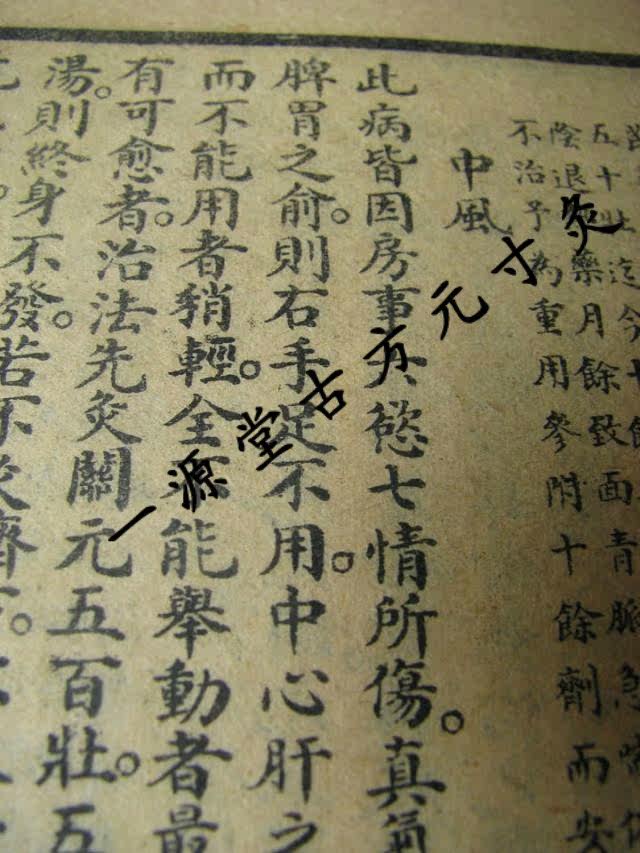 五十壯迄今十餘
陰退藥月餘致面青脈急
不治予為重用參附十餘劑而安
中風
此病皆因房事六慾七情所傷。真氣
脾胃之俞。則右手足不用。中心肝之
而不能用者稍輕。全不能舉動者最
有可愈者。治法先灸關元五百壯。五
湯。則終身不發。若不灸臍下。
一源堂古方元寸灸